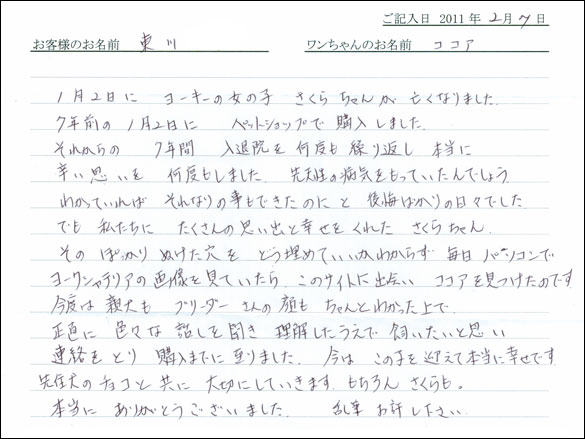 ご記入日 2011年 2月 7日
お客様のお名前 東川 ワンちゃんのお名前 ココア
1月2日に ヨーキーの女の子 さくらちゃんが 亡くなりました.
7年前の1月2日に ペットショップで購入しました.
それからの 7年間 入退院を何度も繰り返し 本当に
辛い思いを 何度もしました. 先天性の病気をもっていたんでしょう
わかっていれば それなりの事もできたのにと 後悔ばかりの日々でした
でも 私たちに たくさんの思い出と幸せをくれた さくらちゃん.
その ぽっかりぬけた穴を どう埋めていいかわからず 毎日パソコンで
ヨークシャテリアの画像を見ていたら このサイトに出会い ココアを見つけたのです
今度は 親犬も ブリーダーさんの顔も ちゃんとわかった上で.
正直に 色々な話しを聞き 理解したうえで 飼いたいと思い
連絡をとり 購入までに至りました. 今は この子を迎えて本当に幸せです
先住犬のチョコと共に 大切にしていきます. もちろん さくらも。
本当に ありがとうございました. 乱筆お許し下さい.